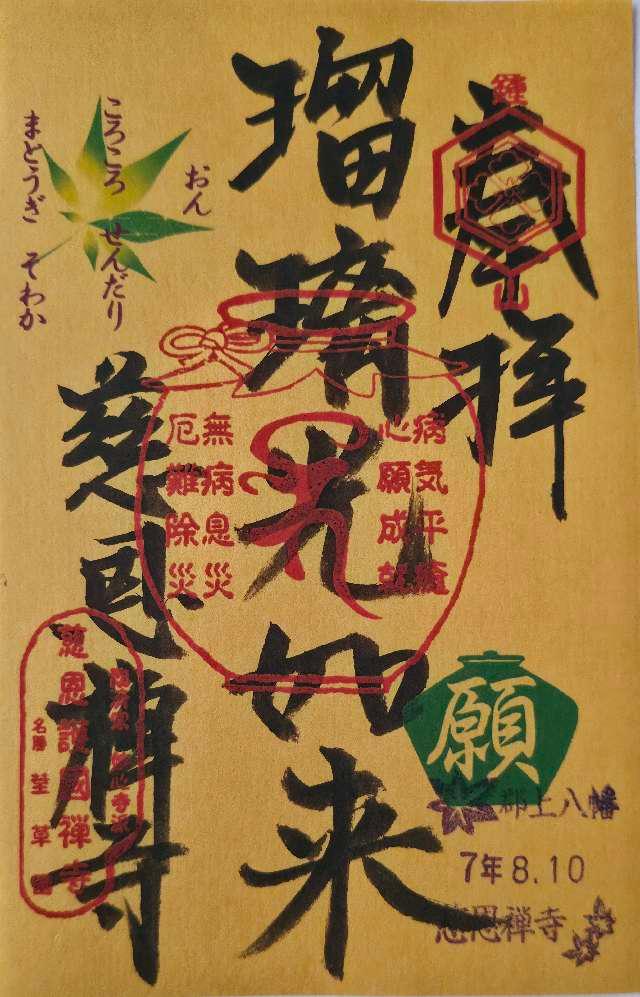 奉拝
鍾
山
瑠璃光如来
病気平癒
心願成就
無病息災
厄難除災
おん
ころころ せんだり
まとうぎ そわか
慈恩禅寺
慈恩護國禅寺
名勝 荎草園
願
郡上八幡
7年8.10
慈恩禅寺